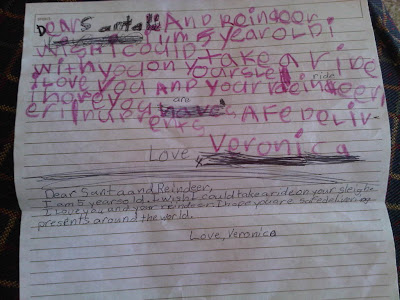 AND Reindeer
I um 5 year OLD i
wish I could take a ride
with you on your slei
I Love you AND Your Reindeer
ride
I hope you are SAFE DeLiv
Love Veronica
Dear Santa and Reindeer,
I am 5 years old. I wish I could take a ride on your sleigh.
I love you and your reindeer. I hope you are safe delivering
presents around the world.
Love, Veronica